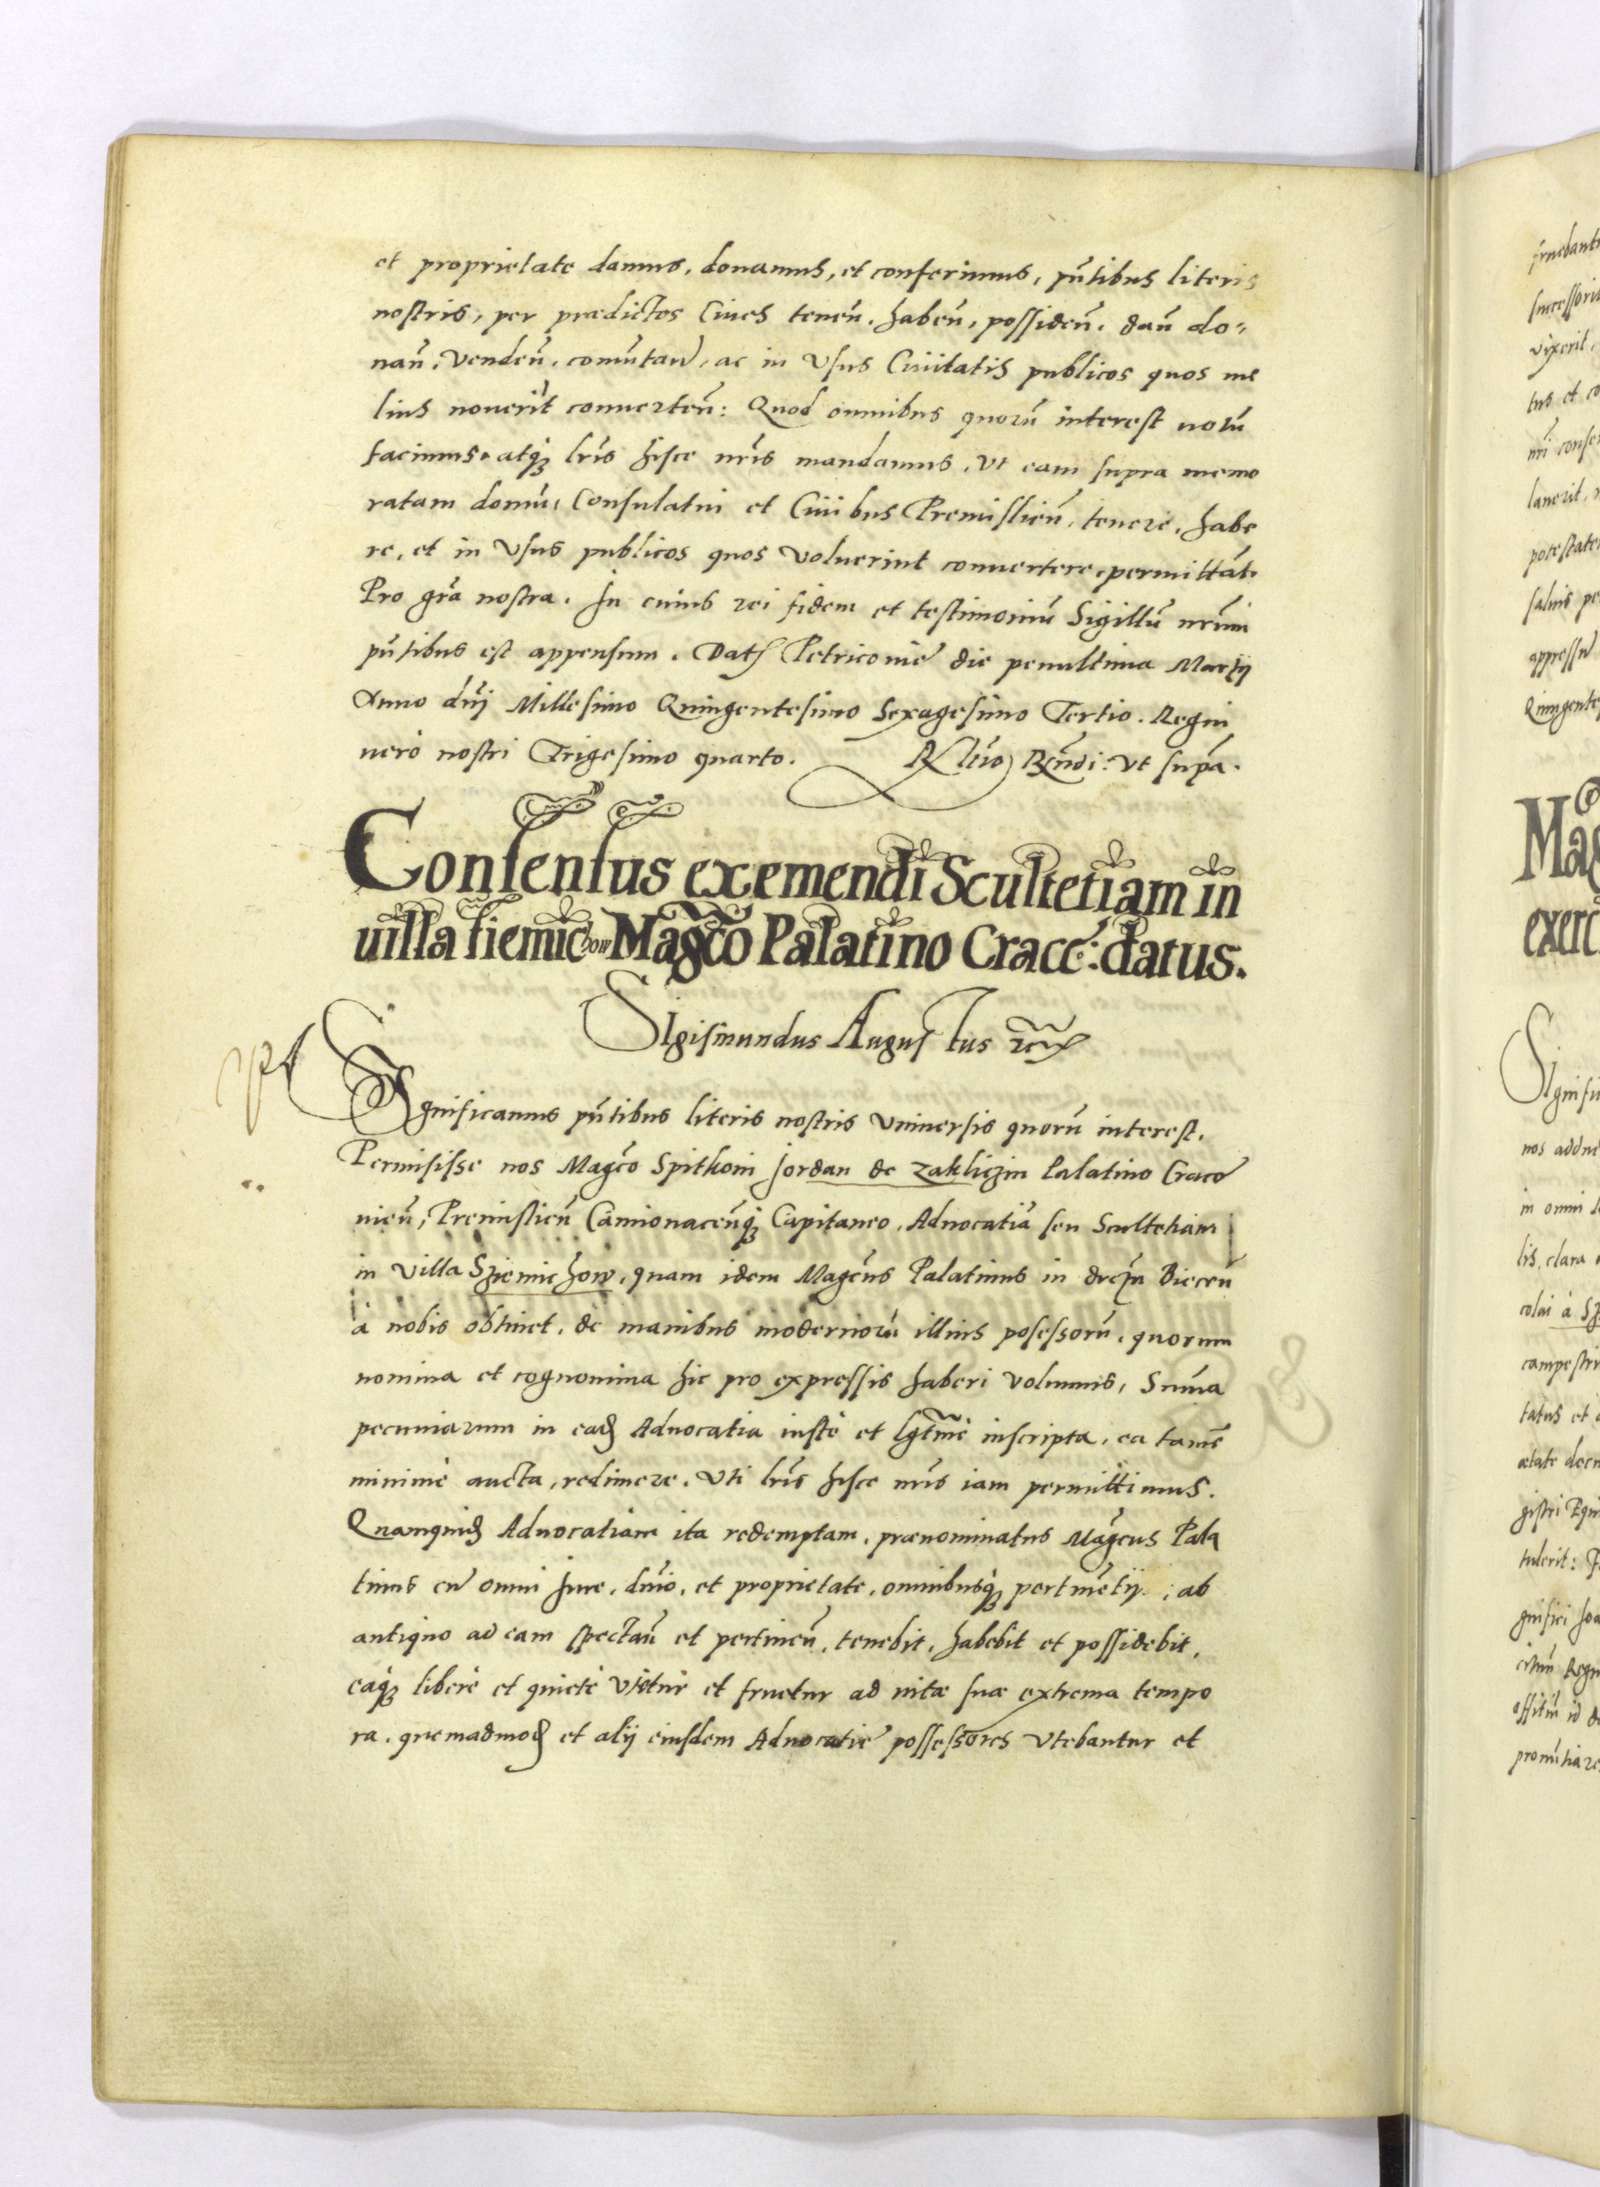 et proprietate damus, donamus, et conferimus, pñtibus literis
nostris, per prædictos Ciues teneñ. habeñ, possideñ. dañ do-
nañ, vendeñ, comutañ, ac in vsus Ciuitatis publicos quos me
lius nouerit conuerteñ: Quod omnibus quorũ interest notũ
facimus, atq; lr̃is hisce nr̃is mandamus, vt eam supra memo
ratam domũ, Consulatui et Ciuibus Premislieñ, tenere, habe
re, et in vsus publicos quos voluerint conuertere, permittãt.
Pro gr̃a nostra. In cuius rei fidem et testimoniũ Sigillũ nr̃um
pñtibus est appensum. Dat Petricouiæ die penultima Martij
Anno dñi Millesimo Quingentesimo Sexagesimo Tertio. Regni
uero nostri Trigesimo quarto. Rl̃tio Rñdi: vt supra.
Consensus exemendi Scultetiam in
uilla siemichow Magco Palatino Cracc: datus.
SIgismundus Augustus rex
SIgnificamus pñtibus literis nostris vniuersis quorũ interest.
Permisisse nos Magco Spitkoni Jordan de zakliczin Palatino Craco
uieñ, Premislieñ Camionaceñq; Capitaneo, Aduocatiã seu Scultetiam
in villa Sziemichow, quam idem Magcus Palatinus in districtu Bieceñ
à nobis obtinet, de manibus modernorũ illius posessorũ, quorum
nomina et cognomina hic pro expressis haberi volumus, Suma
pecuniarum in ead Aduocatia iuste et lgtime inscripta, ea tamẽ
minimè aucta, redimere, vti lr̃is hisce nr̃is iam permittimus.
Quamquid Aduocatiam ita redemptam, prænominatus Magcus Pala
tinus cũ omni Jure, dñio, et proprietate, omnibusq; pertinẽtijs, ab
antiquo ad eam spectañ et pertineñ, tenebit, habebit et possidebit,
eaq; liberè et quietè vtetur et fruetur ad vitæ suæ extrema tempo
ra, quemadmod et alij eiusdem Aduocatiæ possessores vtebantur et